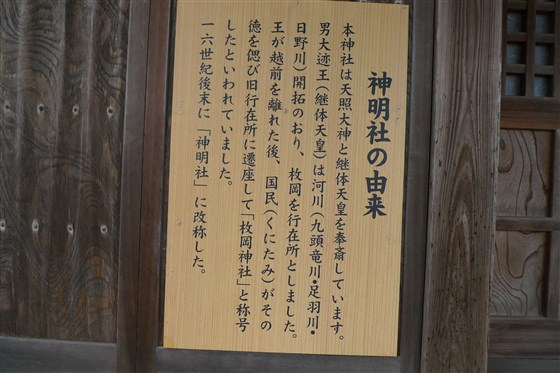 神明社の由来
本神社は天照大神と継体天皇を奉斎しています。
男大迹王(継体天皇)は河川(九頭竜川・足羽川・
日野川)開拓のおり、枚岡を行在所としました。
王が越前を離れた後、国民(くにたみ)がその
徳を偲び旧行在所に遷座して「枚岡神社」と称号
したといわれていました。
一六世紀後末に「神明社」に改称した。